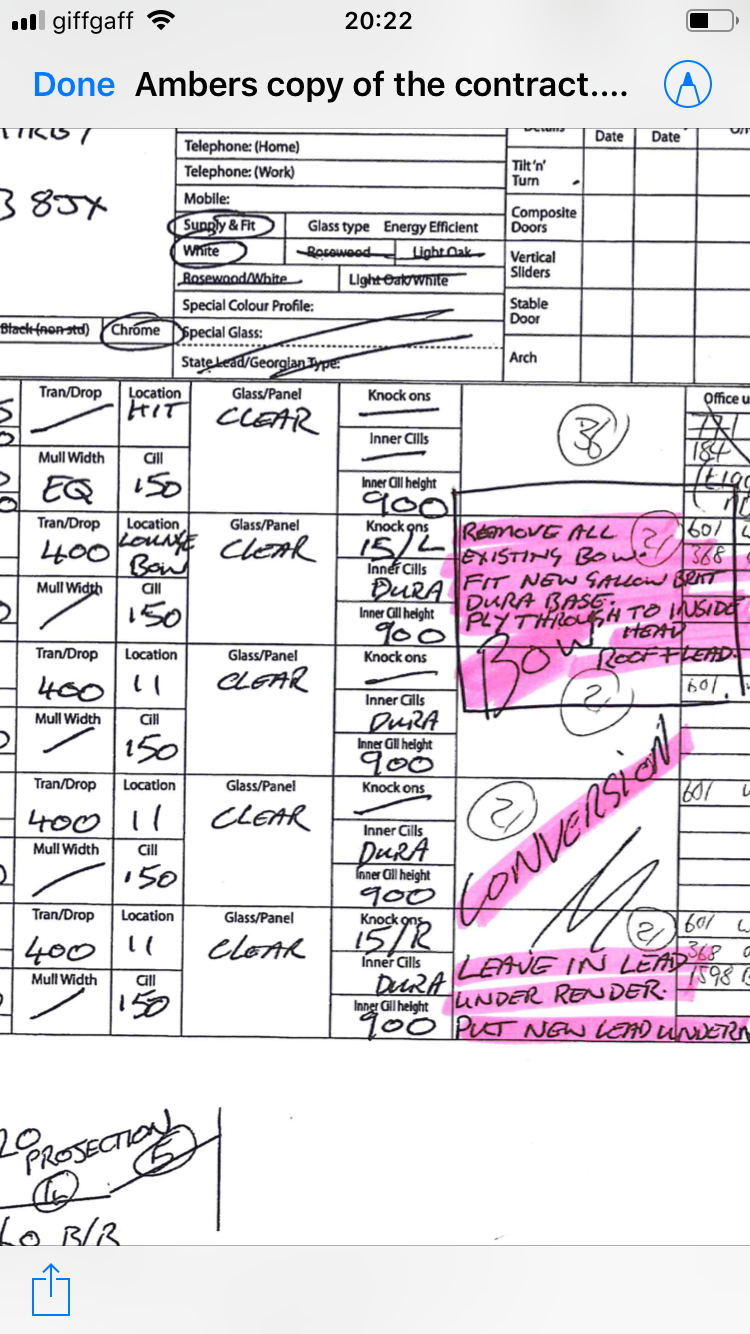 giffgaff 20:22
Done Ambers copy of the contract....
Date Date
Telephone: (Home)
Telephone: (Work)
Mobile:
8JX
Supply & Fit Glass type Energy Efficient
White Rosewood Light Oak
Rosewood/White Light Oak/White
Special Colour Profile:
Black (non std) Chrome Special Glass:
State Lead/Georgian Type:
Tilt 'n' Turn
Composite Doors
Vertical Sliders
Stable Door
Arch
Tran/Drop Location Glass/Panel Knock ons Office u
KIT CLEAR
Inner Cills
Mull Width Cill
EQ 150
Inner Cill height
900
Tran/Drop Location Glass/Panel Knock ons
400 LOUNGE BOW CLEAR 15/L
Inner Cills
DURA
Mull Width Cill
150
Inner Cill height
900
REMOVE ALL 21 601
EXISTING BOW. 368
FIT NEW GALLOW BRKT
DURA BASE.
PLY THROUGH TO INSIDE
HEAD
BOW ROOF + LEAD.
21 601
Tran/Drop Location Glass/Panel Knock ons
400 11 CLEAR
Inner Cills
DURA
Mull Width Cill
150
Inner Cill height
900
Tran/Drop Location Glass/Panel Knock ons
400 11 CLEAR
Inner Cills
DURA
Mull Width Cill
150
Inner Cill height
900
21 601
CONVERSION
Tran/Drop Location Glass/Panel Knock ons
400 11 CLEAR 15/R
Inner Cills
DURA
Mull Width Cill
150
Inner Cill height
900
21 601
368
LEAVE IN LEAD 1598
UNDER RENDER.
PUT NEW LEAD UNDERN
PROJECTION 5
B/B